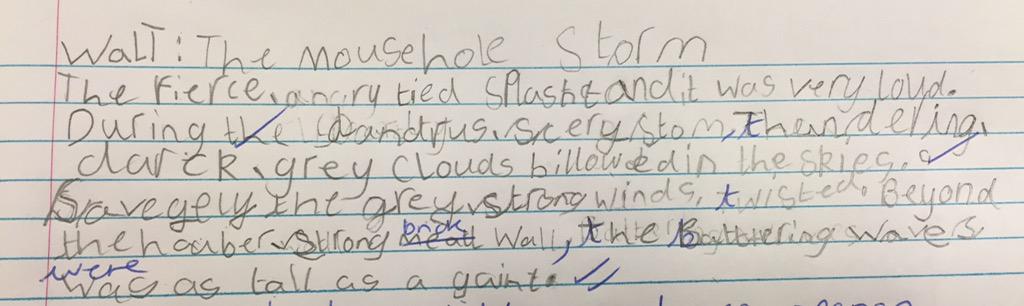 WALT: The mousehole Storm
The fierce, angry tied Splasht and it was very loud.
During the dandrus, scery stom, thendering,
darck, grey Clouds billowed in the skies.
Savegely the grey, strong winds, twisted. Beyond
brick
the hauber, strong Wall, the Battering waves
were
was as tall as a gaint.